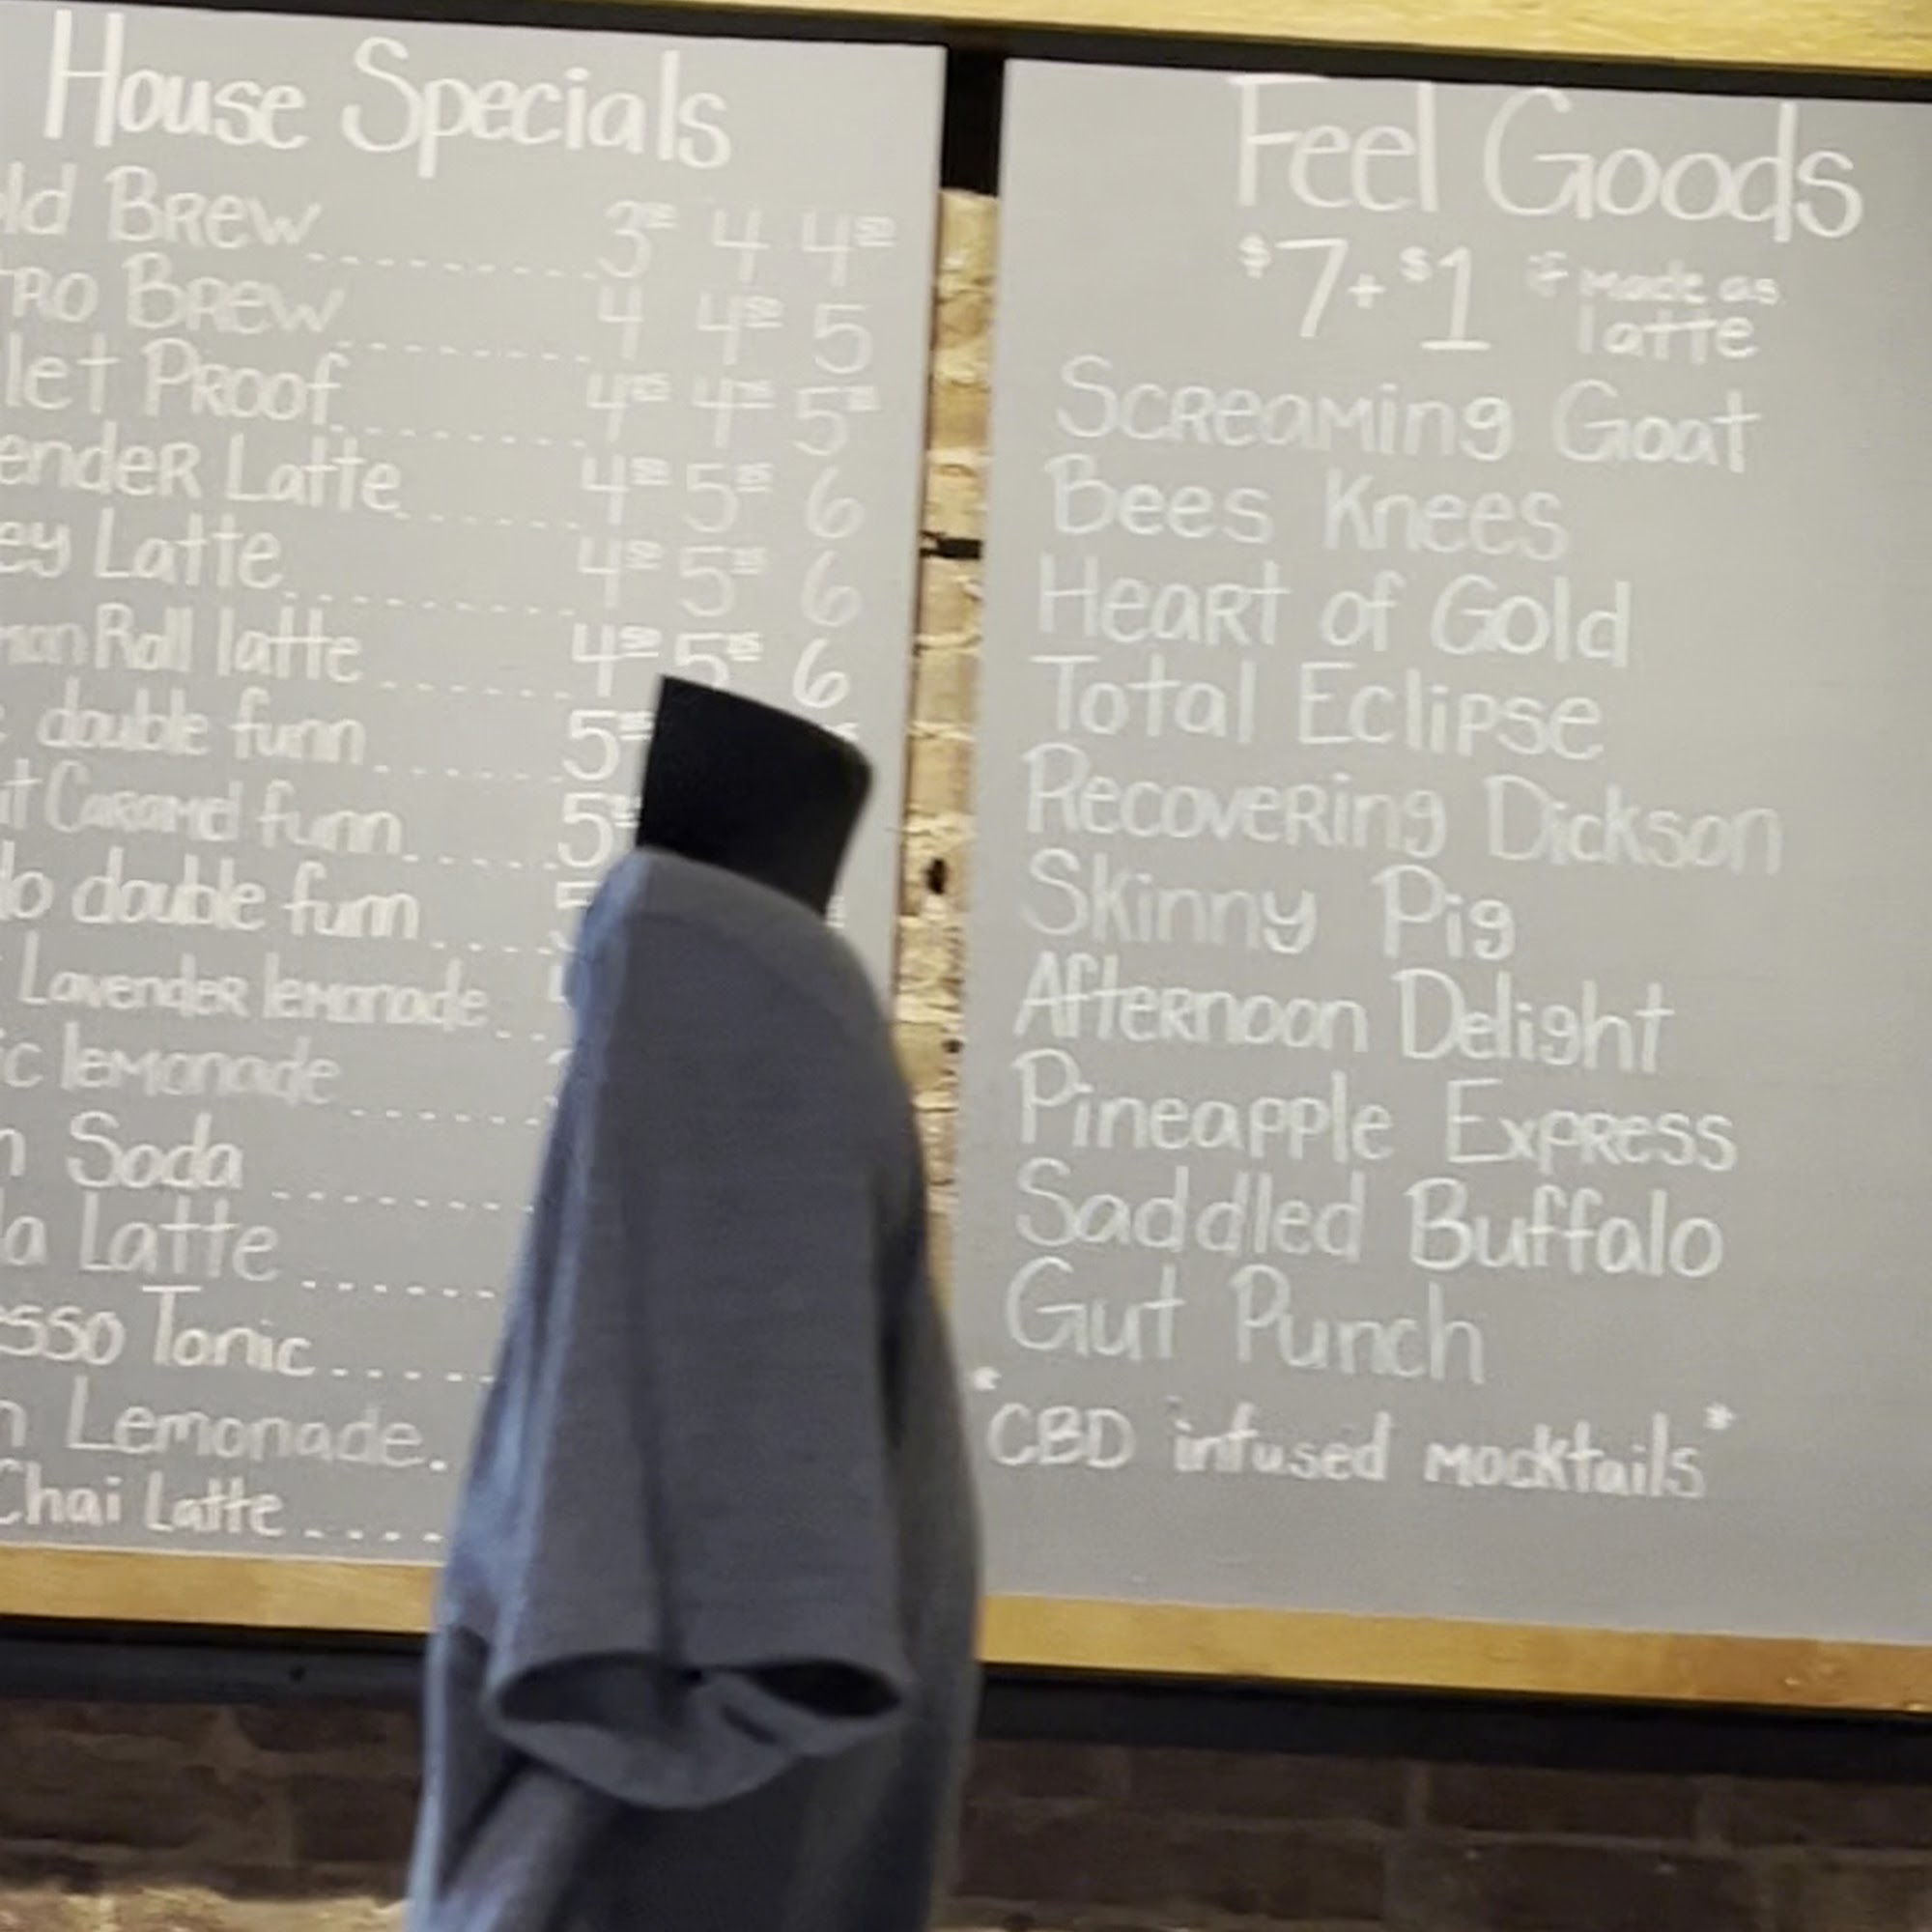 House Specials
ld Brew 3 4 4⁵⁰
tro Brew 4 4⁵⁰ 5
let Proof 4 4 5
ender Latte 4⁵⁰ 5 6
ey Latte 4⁵⁰ 5 6
mon Roll latte 4⁵⁰ 5 6
double funn 5
it Caramel funn 5
lo double funn 5
Lavender lemonade
ic lemonade
n Soda
la Latte
esso Tonic
n Lemonade
Chai Latte
Feel Goods
$7 + $1 if Made as
latte
Screaming Goat
Bees Knees
Heart of Gold
Total Eclipse
Recovering Dickson
Skinny Pig
Afternoon Delight
Pineapple Express
Saddled Buffalo
Gut Punch
*CBD infused mocktails*